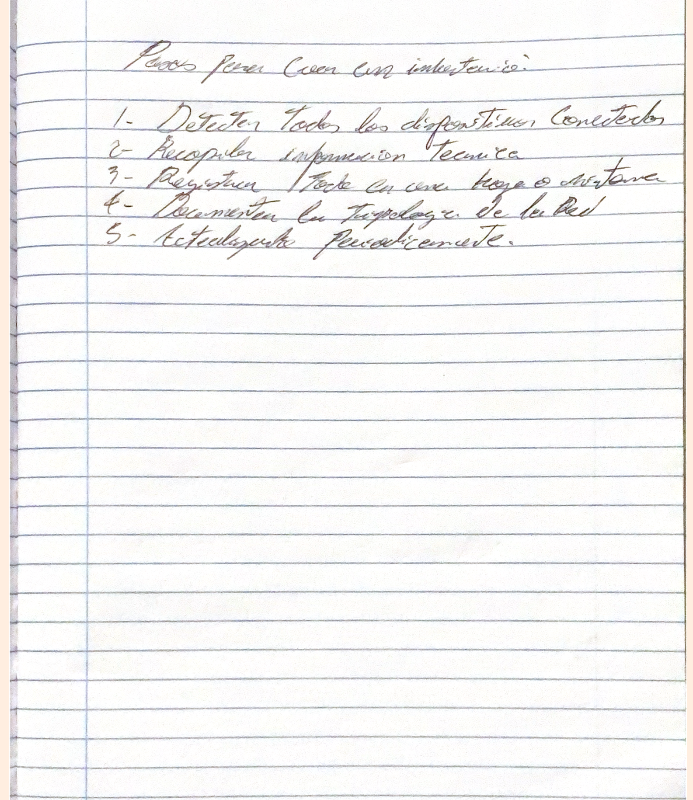 Pasos para crear un inventario:
1- Detectar todos los dispositivos Conectados
2- Recopilar informacion tecnica
3- Registrar todo en una hoja o
4- Documentar la Topologia de la Red
5- Periodicamente.